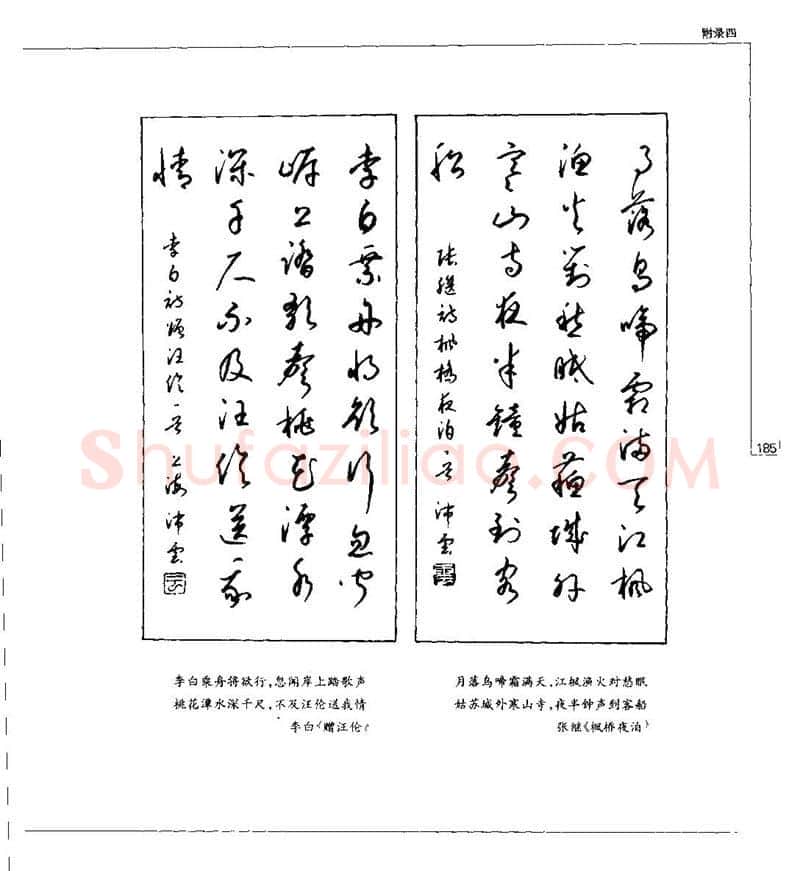 附录四
月落乌啼霜满天江枫
渔火对愁眠姑苏城外
寒山寺夜半钟声到客
船
张继诗枫桥夜泊一首 沛云
李白乘舟将欲行忽闻
岸上踏歌声桃花潭水
深千尺不及汪伦送我
情
李白诗赠汪伦一首 上海沛云
185
Shufaziliao.COM
李白乘舟将欲行,忽闻岸上踏歌声
桃花潭水深千尺,不及汪伦送我情
李白《赠汪伦》
月落乌啼霜满天,江枫渔火对愁眠
姑苏城外寒山寺,夜半钟声到客船
张继《枫桥夜泊》